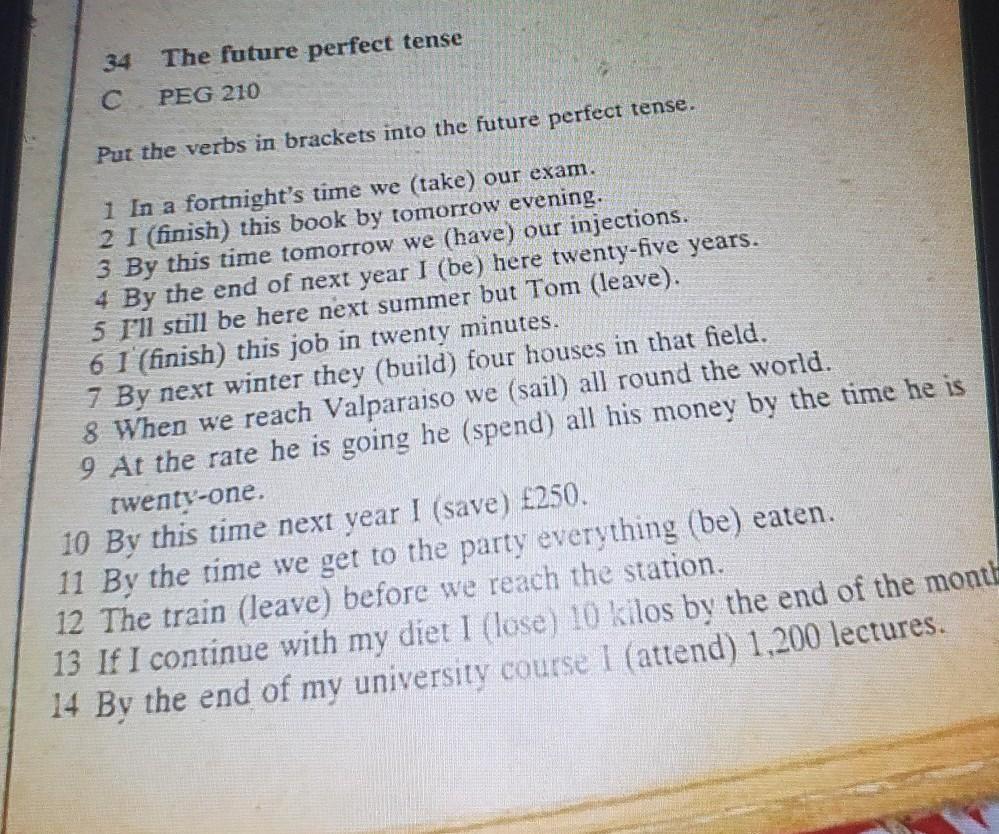 34 The future perfect tense
C PEG 210
Put the verbs in brackets into the future perfect tense.
1 In a fortnight's time we (take) our exam.
2 I (finish) this book by tomorrow evening.
3 By this time tomorrow we (have) our injections.
4 By the end of next year I (be) here twenty-five years.
5 I'll still be here next summer but Tom (leave).
6 I (finish) this job in twenty minutes.
7 By next winter they (build) four houses in that field.
8 When we reach Valparaiso we (sail) all round the world.
9 At the rate he is going he (spend) all his money by the time he is
twenty-one.
10 By this time next year I (save) £250.
11 By the time we get to the party everything (be) eaten.
12 The train (leave) before we reach the station.
13 If I continue with my diet I (lose) 10 kilos by the end of the month
14 By the end of my university course I (attend) 1,200 lectures.